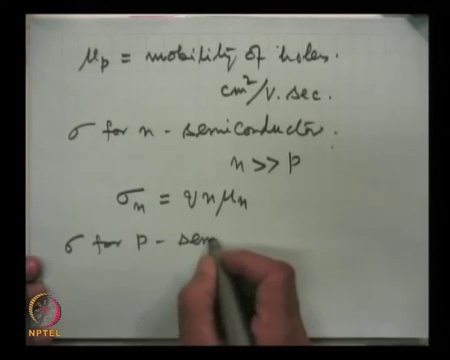 μp = mobility of holes.
cm²/v.sec.
σ for n - semiconductor.
n >> p
σn = q n μn
σ for p - sem
NPTEL